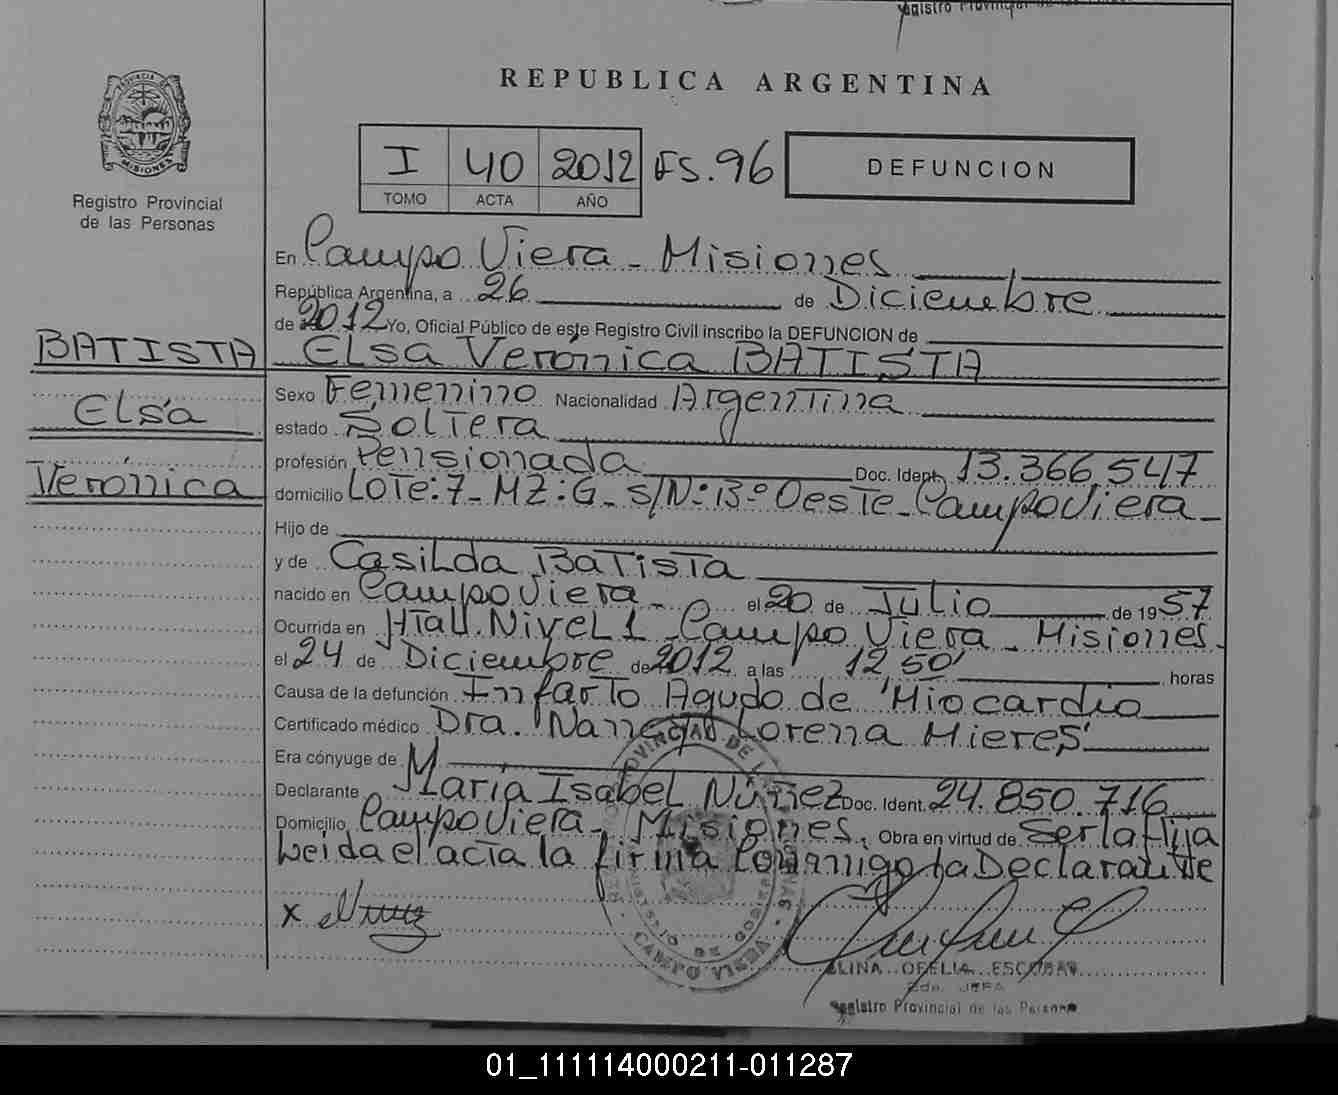 Registro Provincial de las
REPUBLICA ARGENTINA
PROVINCIA DE MISIONES
Registro Provincial
de las Personas
I 40 2012 FS. 96
TOMO ACTA AÑO
DEFUNCION
En Campo Viera - Misiones
República Argentina, a 26 de Diciembre
de 2012 Yo, Oficial Público de este Registro Civil inscribo la DEFUNCION de
BATISTA Elsa Verónica BATISTA
Elsa
Verónica
Sexo Femenino Nacionalidad Argentina
estado Soltera
profesión Pensionada Doc. Ident. 13.366.547
domicilio Lote: 7 - MZ: G - S/Nº: Bº Oeste - Campo Viera -
Hijo de
y de Casilda Batista
nacido en Campo Viera - el 20 de Julio de 1957
Ocurrida en Htal. Nivel 1 - Campo Viera - Misiones.
el 24 de Diciembre de 2012 a las 12,50' horas
Causa de la defunción Infarto Agudo de Miocardio
Certificado médico Dra. Nancy Lorena Mieres
Era cónyuge de
Declarante María Isabel Núñez Doc. Ident. 24.850.716
Domicilio Campo Viera - Misiones. Obra en virtud de Ser la Hija
Leída el acta la firma Conmigo la Declarante
x
CAMPO VIERA
ALINA OFELIA ESCOBAR
JEFA
Registro Provincial de las Personas
01_111114000211-011287